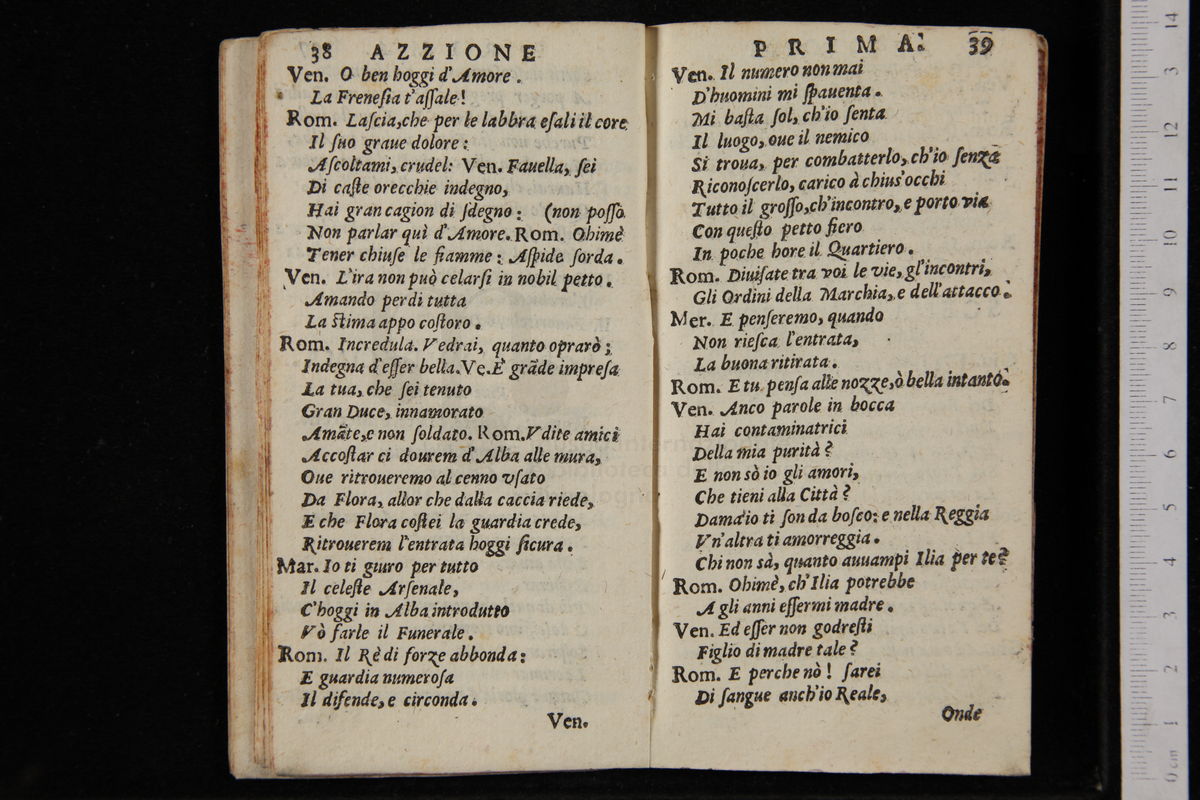 38 AZZIONE
Ven. O ben hoggi d'Amore.
La Frenesia t'assale!
Rom. Lascia,che per le labbra esali il core
Il suo graue dolore:
Ascoltami, crudel: Ven. Fauella, sei
Di caste orecchie indegno,
Hai gran cagion di sdegno: (non posso
Non parlar quì d'Amore. Rom. Ohimè
Tener chiuse le fiamme: Aspide sorda.
Ven. L'ira non può celarsi in nobil petto.
Amando perdi tutta
La stima appo costoro.
Rom. Incredula. Vedrai, quanto oprarò;
Indegna d'esser bella. Ve. E' grāde impresa
La tua, che sei tenuto
Gran Duce, innamorato
Amāte,e non soldato. Rom. Vdite amici
Accostar ci dourem d'Alba alle mura,
Oue ritroueremo al cenno vsato
Da Flora, allor che dalla caccia riede,
E che Flora costei la guardia crede,
Ritrouerem l'entrata hoggi sicura.
Mar. Io ti giuro per tutto
Il celeste Arsenale,
C'hoggi in Alba introdutto
Vò farle il Funerale.
Rom. Il Rè di forze abbonda:
E guardia numerosa
Il difende, e circonda.
Ven.
PRIMA. 39
Ven. Il numero non mai
D'huomini mi spauenta.
Mi basta sol, ch'io senta
Il luogo, oue il nemico
Si troua, per combatterlo, ch'io senza
Riconoscerlo, carico à chius'occhi
Tutto il grosso,ch'incontro, e porto via
Con questo petto fiero
In poche hore il Quartiero.
Rom. Diuisate tra voi le vie, gl'incontri,
Gli Ordini della Marchia, e dell'attacco.
Mer. E penseremo, quando
Non riesca l'entrata,
La buona ritirata.
Rom. E tu pensa alle nozze,ò bella intanto.
Ven. Anco parole in bocca
Hai contaminatrici
Della mia purità?
E non sò io gli amori,
Che tieni alla Città?
Dama io ti son da bosco: e nella Reggia
Vn'altra ti amorreggia.
Chi non sà, quanto auuampi Ilia per te?
Rom. Ohimè, ch'Ilia potrebbe
A gli anni essermi madre.
Ven. Ed esser non godresti
Figlio di madre tale?
Rom. E perche nò! sarei
Di sangue anch'io Reale,
Onde